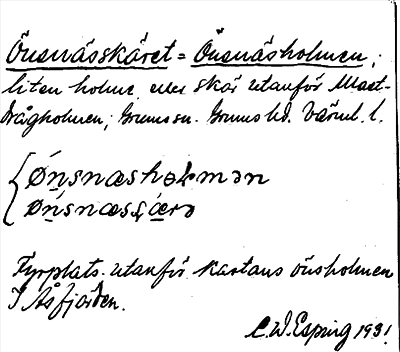 Önsnässkäret = Önsnäsholmen;
liten holme eller skär utanför Mast-
drågholmen; Grums sn. Grums hd. Värml. l.
Ønsnæshołmən
Ønsnæsʂæ̨rə
Fyrplats utanför kartans önsholmen
I Åsfjorden.
C.W. Esping 1931.